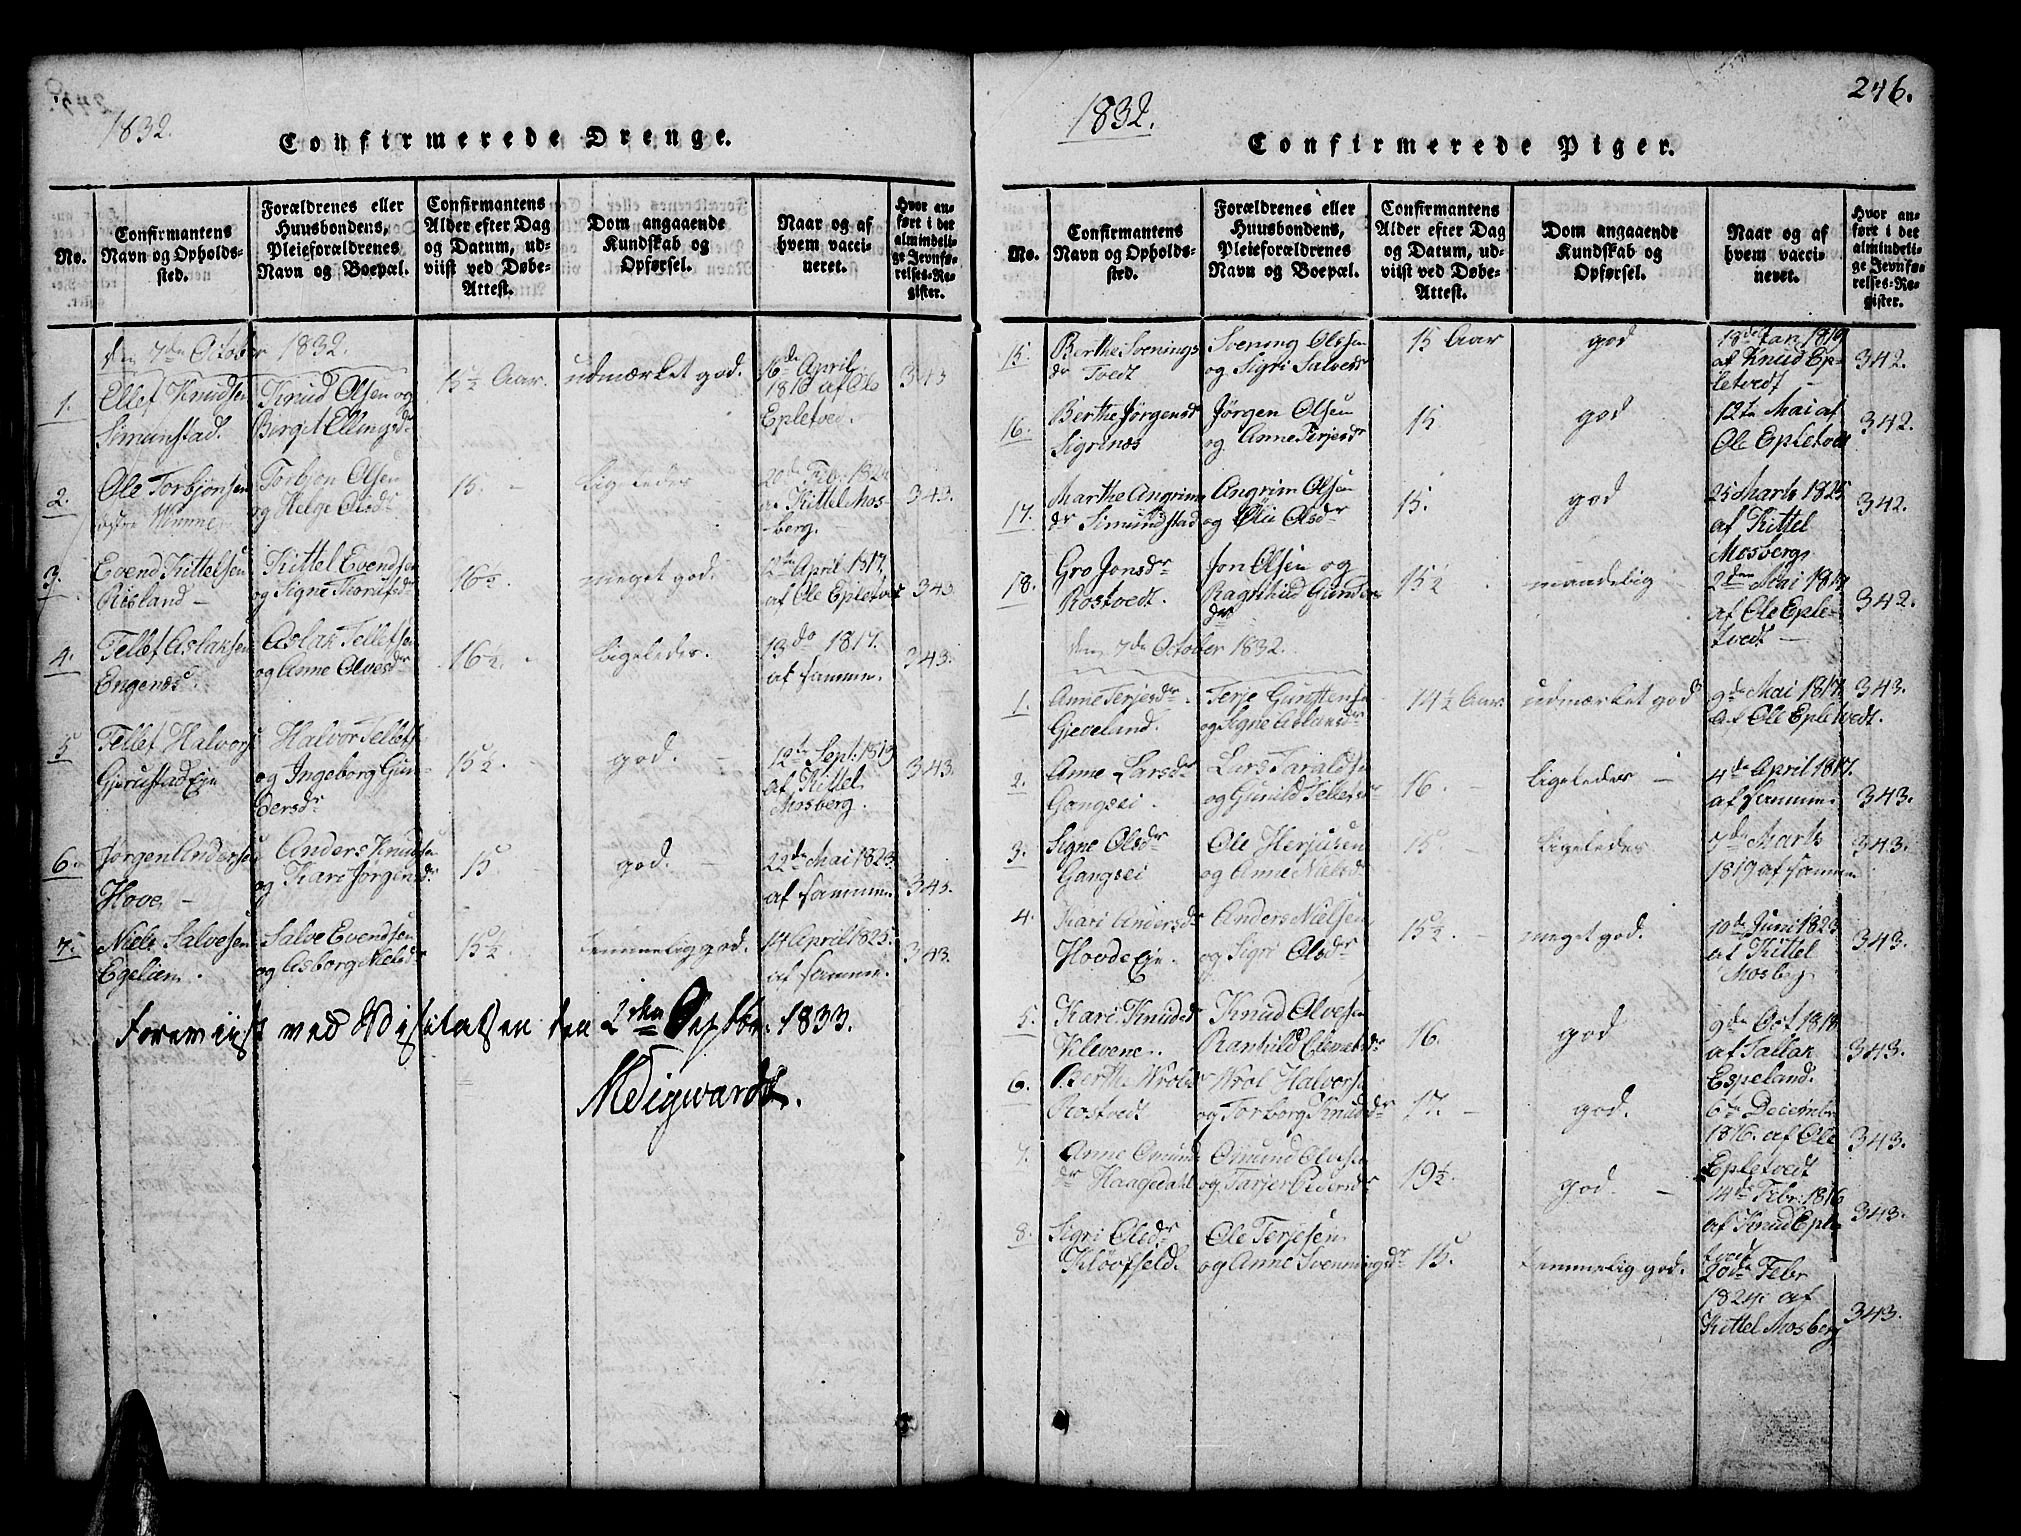 1832.
Confirmerede Drenge.
No.
Confirmantens
Navn og Opholds-
sted.
Forældrenes eller
Huusbondens,
Pleieforældrenes
Navn og Boepæl.
Confirmantens
Alder efter Dag
og Datum, ud-
viist ved Døbe-
Attest.
Dom angaaende
Kundskab og
Opførsel.
Naar og af
hvem vacci-
neret.
Hvor an-
ført i det
almindeli-
ge Jevnfø-
relses-Re-
gister.
den 7de October 1832.
1.
Ellef Knudsen
Simunstad.
Knud Olsen og
Birgit Ellingsdr
15½ Aar.
udmærket god.
16de April
1816 af Ole
Epletved.
343
2.
Ole Torbjønsen
østre
Torbjøn Olsen
og Helge Olsdr
15. -
ligeledes
20de Febr. 1824
af Kittel Mos-
berg. -
343.
3.
Evend Kittelsen
Risland -
Kittel Evendsen
og Signe
16½.
meget god.
April 1817.
af Ole Epletvet
343
4.
Tellef Aslaksen
Engenæs.
Aslak Tellefsen
og Anne Olvesdr
16½.
ligeledes.
13do 1817.
af samme.
343.
5
Tellef Halvors
Gjerustad Eje
Halvor Tellefs
og Ingeborg Gun-
dersdr
15½.
god.
12te Sept. 1819
af Kittel
Mosberg.
343.
6.
Jørgen Andersen
Hove -
Anders Knudsen
og Kari Jørgensdr
15
god. -
22de Mai 1823.
af samme
343.
7.
Niels Salvesen
Egelien.
Salve Evendsen
og Asborg Nielsdr
15½.
temmelig god.
14 April 1825.
af samme.
343.
Foreviist ved Visitatsen den 2den Septbr. 1833.
246.
1832.
Confirmerede Piger.
No.
Confirmantens
Navn og Opholds-
sted.
Forældrenes eller
Huusbondens,
Pleieforældrenes
Navn og Boepæl.
Confirmantens
Alder efter Dag
og Datum, ud-
viist ved Døbe-
Attest.
Dom angaaende
Kundskab og
Opførsel.
Naar og af
hvem vacci-
neret.
Hvor an-
ført i det
almindeli-
ge Jevnfø-
relses-Re-
gister.
15.
Berthe Svenings
dr Tvedt
Svening Olssen
og Sigri Salvesdr
15 Aar
god
Jan 1819
af Knud Ep-
letvedt -
342.
16.
Berthe Jørgensdr
Sigrenæs
Jørgen Olsen
og Anne Terjesdr
15
god
12te Mai af
Ole Epletved
342.
17.
Marthe Angrim
dr Simundstad
Angrim Olsen
og Olsdr
15.
god
25 Marts 1825
af Kittel
Mosberg
342.
18.
Gro Jonsdr
Rostvedt.
Jon Olsen og
Ragnhild Gunder
dr
15½
maadelig
2den Mai 1817
af Ole Eple-
tvedt -
342.
den 7de October 1832.
1.
Anne Terjesdr
Gjeveland.
Terje Gunstensen
og Signe Aslaksdr
14½ Aar
udmærket god
9de Mai 1817.
af Ole Epletvedt.
343.
2.
Anne Larsdr
Gangsei.
Lars Taraldsen
og Gunild Tellefsdr
16.
ligeledes -
4de April 1817.
af samme
343.
3.
Signe Olsdr
Gangsei
Ole Herjusen
og Anne Nielsdr
15
ligeledes
7de Marts
1819 af samme
343.
4.
Kari Andersdr
Hovde Eje.
Anders Nielsen
og Sigri Olsdr
15½.
meget god.
10de Juni 1823
af Kittel
Mosberg
343.
5.
Kari Knudsd
Klevene.
Knud Olvesen
16.
god
9de Oct 1818
af Tallak
Espeland.
343.
6.
Berthe Wrolsdr
Rostvedt
Wrol Halvorsen
og Torborg Knudsdr
17. -
god.
6te Decembr
1816. af Ole
Epletvedt
343.
7.
Anne Omunds
dr Haagedahl
Omund Olvesen
og Tarjer Pedersdr
19½.
god. -
14de Febr. 1816
af Knud Eple
tvedt
343.
8.
Sigri Olsdr
Kløvfjeld.
Ole Terjesen
og Anne Svenningsdr
15.
temmelig god.
20de Febr
1824 af
Kittel Mosberg
343.